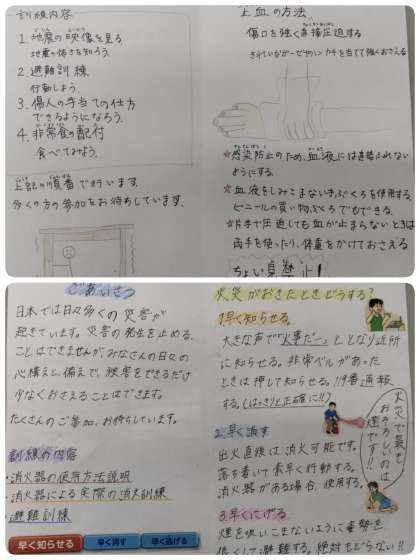 訓練内容
1.地震の映像を見る
地震の怖さを知ろう。
2.避難訓練
行動しよう。
3.傷人の手当ての仕方
できるようになろう。
4.非常食の配付
食べてみよう。
上記の順番で行います。
多くの方の参加をお待ちしています。
止血の方法
傷口を強く直接圧迫する
きれいなガーゼやハンカチを当てて強くおさえる
☆感染防止のため、血液には直接ふれない
ようにする。
☆血液をしみこまない手ぶくろを使用する。
ビニールの買い物ぶくろでもできる。
☆片手で圧迫しても血が止まらないときは
両手を使ったり、体重をかけておさえる
ごあいさつ
日本では日々多くの災害が
起きています。災害の発生を止める
ことはできませんが、みなさんの日々の
心構えと、備えで、被害をできるだけ
少なくおさえることはできます。
たくさんのご参加、お待ちしています。
訓練の内容
・消火器の使用方法説明
・消火器による実際の消火訓練
・避難訓練
早く知らせる 早く消す 早く逃げる
火災がおきたときどうする?
1.早く知らせる。
大きな声で「火事だー」と、となり近所
に知らせる。非常ベルがあった
ときは押して知らせる。119番通報
する。(はっきりと正確に!!)
火災で最も
おそろしいのは
煙です!!
2.早く消す
出火直後は消火可能です。
落ち着いて素早く行動する。
消火器がある場合、使用する。
3.早くにげる。
煙を吸いこまないように姿勢を
低くして避難する。絶対もどらない!!